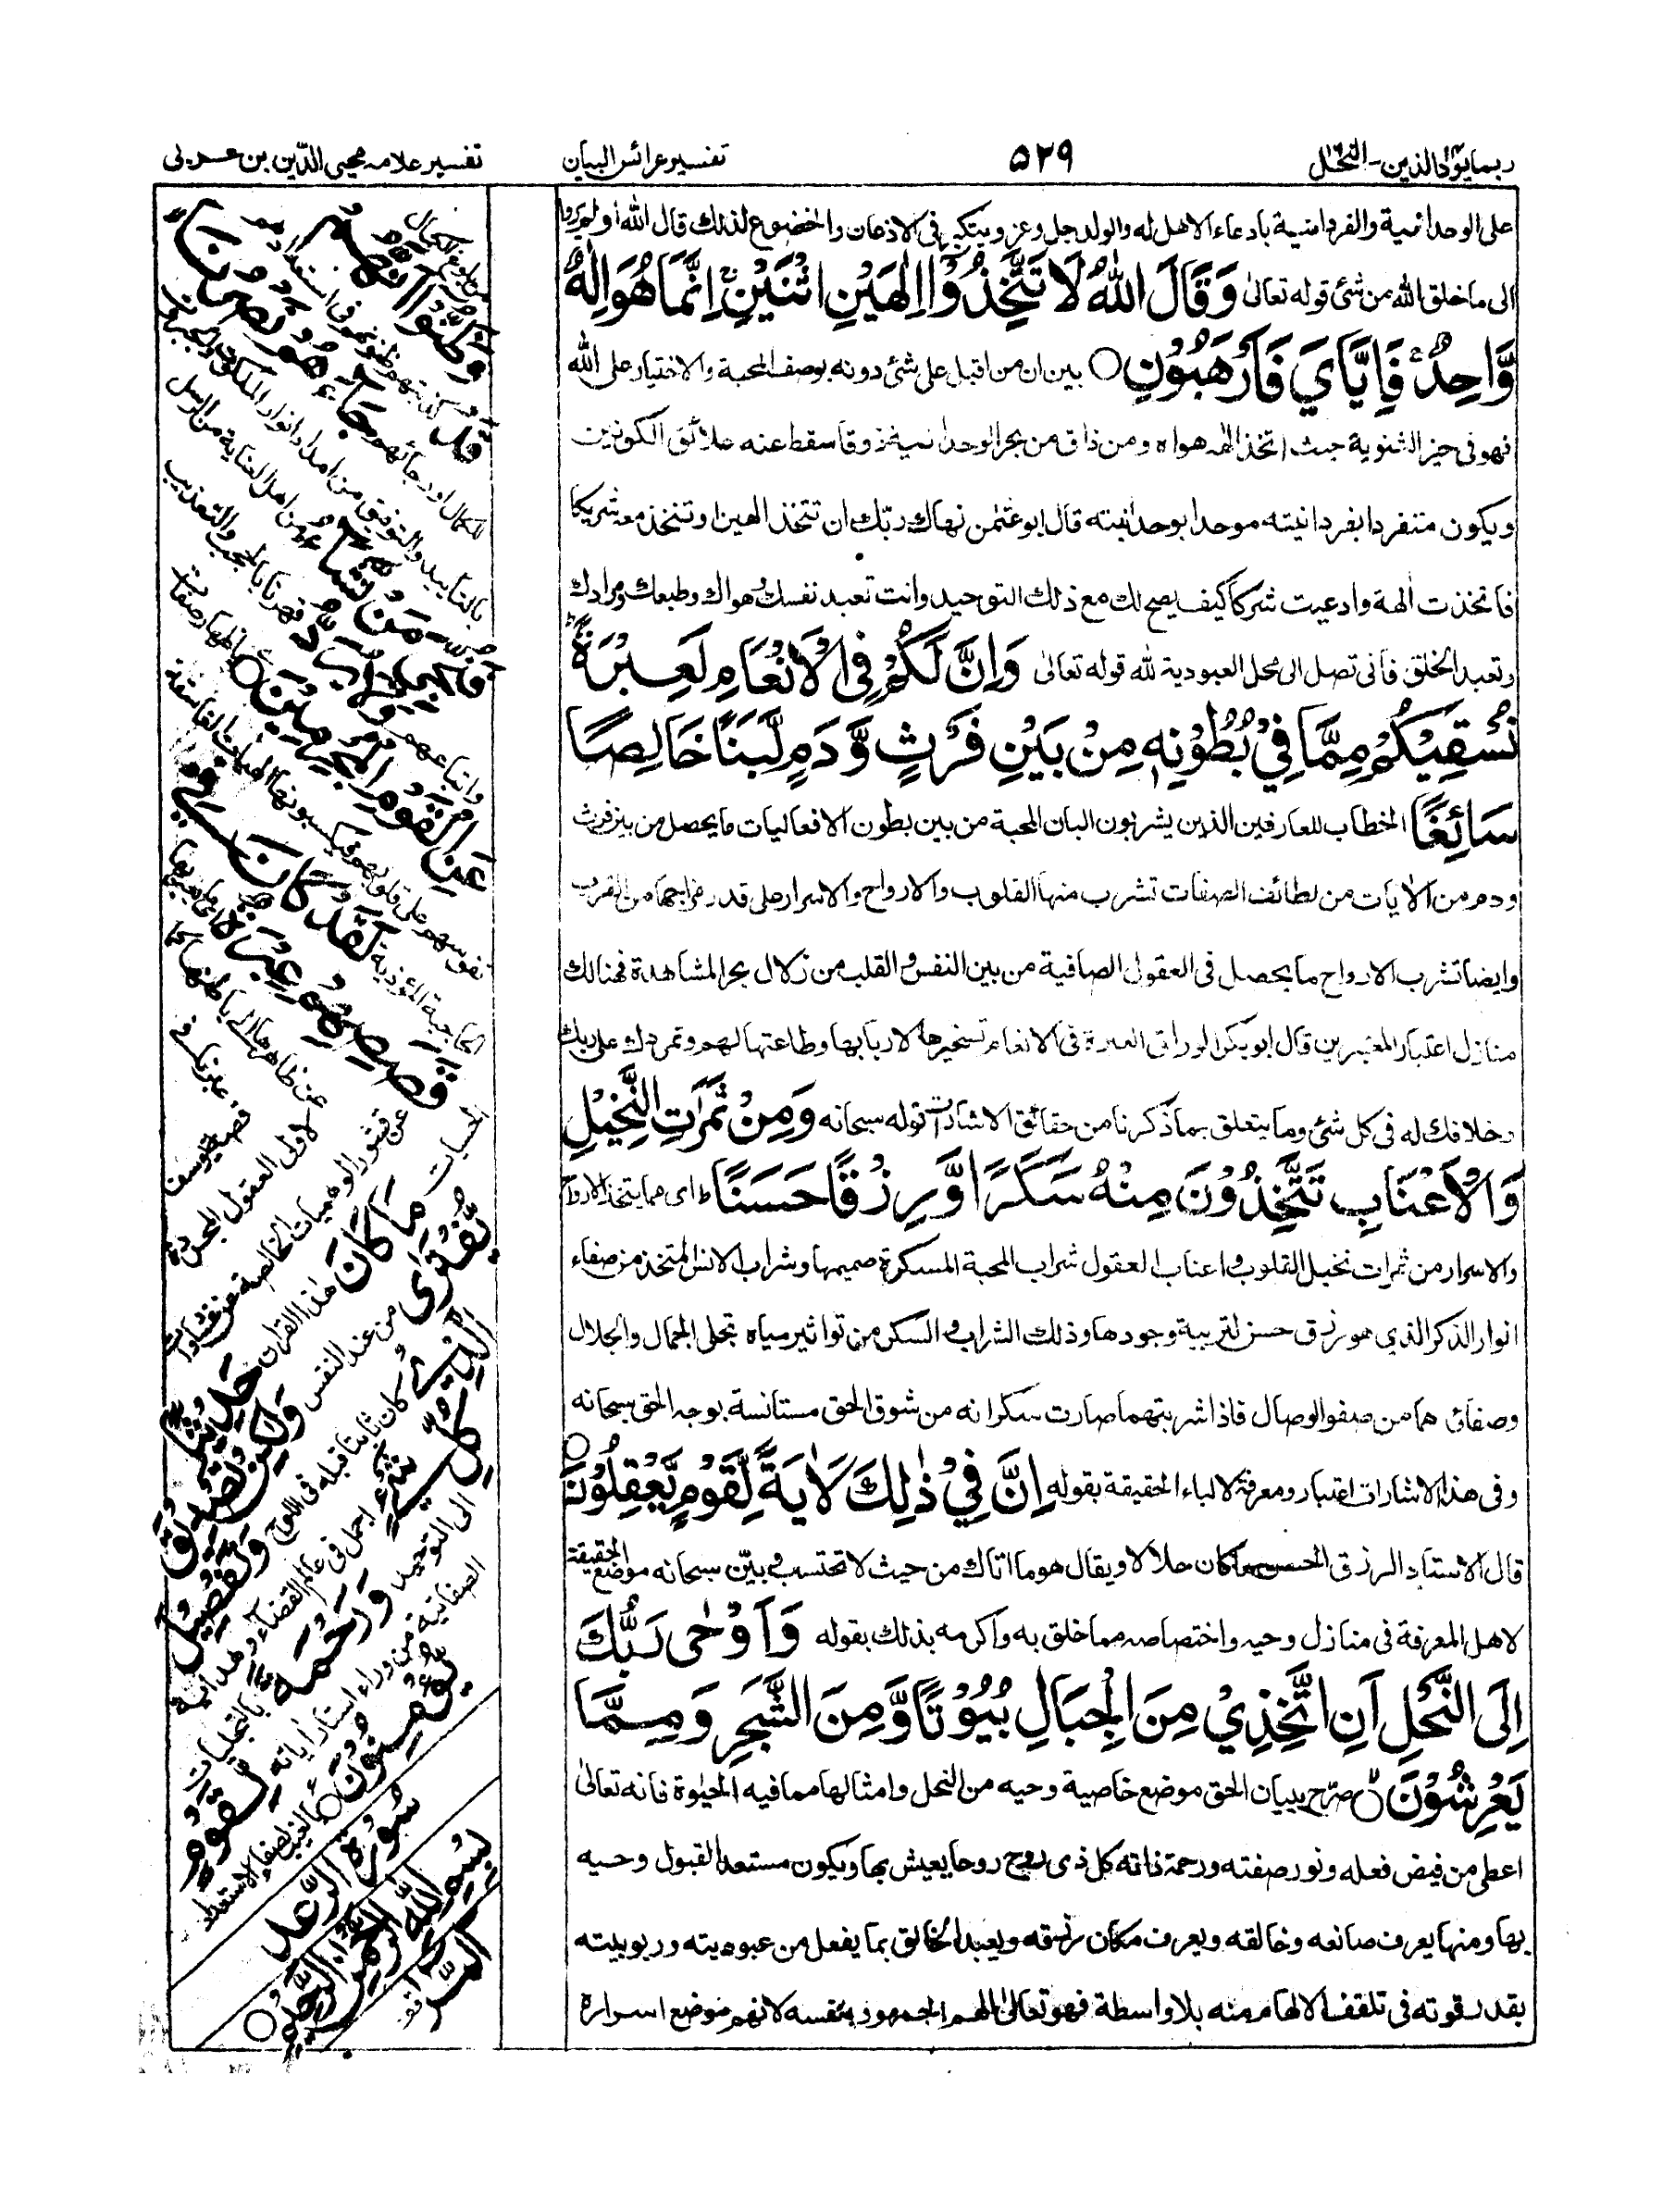 ربما يوّد الذين - النحل
٥٢٩
تفسير عرائس البيان
تفسير علامه محيي الدّين بن عربی
على الوحدانية والفردانية بادعاء الاهل له والولد جل وعز ويتكبر فى الاذعان والخضوع لذلك قال الله اولم يروا
الى ما خلق الله من شئ قوله تعالى وَقَالَ اللهُ لَا تَتَّخِذُوْٓا اِلٰهَيْنِ اثْنَيْنِ ۚ اِنَّمَا هُوَ اِلٰهٌ
وَّاحِدٌ ۚ فَاِيَّايَ فَارْهَبُوْنِ ○ بين ان من اقبل على شئ دونه بوصف المحبة والاختيار على الله
فهو فى حيز الثنوية حيث اتخذ الهه هواه ومن ذاق من بحر الوحدانية ذوقا سقط عنه علائق الكونين
ويكون متفردا بفردانيته موحدا بوحدانيته قال ابو عثمن نهاك ربك ان تتخذ الهين وتتخذ معه شريكا
فاتخذت الهة وادعيت شركا كيف يصح لك مع ذلك التوحيد وانت تعبد نفسك وهواك وطبعك ومرادك
وتعبد الخلق فانى تصل الى محل العبودية لله قوله تعالى وَاِنَّ لَكُمْ فِى الْاَنْعَامِ لَعِبْرَةً ؕ
نُسْقِيْكُمْ مِمَّا فِيْ بُطُوْنِهٖ مِنْ بَيْنِ فَرْثٍ وَّدَمٍ لَّبَنًا خَالِصًا
سَائِغًا الخطاب للعارفين الذين يشربون البان المحبة من بين بطون الافعاليات ما يحصل من بين فرث
ودم من الاٰيات من لطائف الصفات تشرب منها القلوب والارواح والاسرار على قدر مزاجها من القرب
وايضا تشرب الارواح ما يحصل فى العقول الصافية من بين النفس والقلب من زلال بحر المشاهدة فهنالك
منازل اعتبار المعتبرين قال ابو بكر الوراق العبرة فى الانعام تسخيرها لاربابها وطاعتها لهم وتمردك على ربك
وخلافك له فى كل شئ وما يتعلق بما ذكرنا من حقائق الاشارات قوله سبحانه وَمِنْ ثَمَرٰتِ النَّخِيْلِ
وَالْاَعْنَابِ تَتَّخِذُوْنَ مِنْهُ سَكَرًا وَّرِزْقًا حَسَنًا ؕ اى مما يتخذ الارواح
والاسرار من ثمرات نخيل القلوب واعناب العقول شراب المحبة المسكرة صميمها وشراب الانس المتخذ من صفاء
انوار الذكر الذى هو رزق حسن لتربية وجودها وذلك الشراب والسكر من تواثير مياه تجلى الجمال والجلال
وصفائهما من صفو الوصال فاذا شربتهما صارت سكرانه من شوق الحق مستانسة بوجه الحق سبحانه
وفى هذا الاشارات اعتبار ومعرفة لالباء الحقيقة بقوله اِنَّ فِيْ ذٰلِكَ لَاٰيَةً لِّقَوْمٍ يَّعْقِلُوْنَ ○
قال الاستاد الرزق الحسن ما كان حلالا ويقال هو ما اتاك من حيث لا تحتسب وبيّن سبحانه موضع الحقيقة
لاهل المعرفة فى منازل وحيه واختصاصه مما خلق به واكرمه بذلك بقوله وَاَوْحٰى رَبُّكَ
اِلَى النَّحْلِ اَنِ اتَّخِذِيْ مِنَ الْجِبَالِ بُيُوْتًا وَّمِنَ الشَّجَرِ وَمِمَّا
يَعْرِشُوْنَ ○ صرّح ببيان الحق موضع خاصية وحيه من النحل وامثالها مما فيه الحيٰوة فانه تعالى
اعطى من فيض فعله ونور صفته ورحمة ذاته كل ذى روح روحا يعيش بها ويكون مستعدا لقبول وحيه
بها ومنها يعرف صانعه وخالقه ويعرف مكان رزقه ويعبد الخالق بما يفعل من عبوديته وربوبيته
بقدر قوته فى تلقف الالهام منه بلا واسطة فهو تعالى الهم الجمهور بنفسه لانهم موضع اسراره
وَظَنُّوْٓا اَنَّهُمْ
قَدْ
جَآءَهُمْ نَصْرُنَا
بالتأييد والتوفيق من امداد انوار الملكوت
فَنُجِّيَ مَنْ نَّشَآءُ
من اهل العناية
وَلَا يُرَدُّ بَأْسُنَا
قهرنا بالحجب والتعذيب
عَنِ الْقَوْمِ الْمُجْرِمِيْنَ ○
لَقَدْ كَانَ فِيْ
قَصَصِهِمْ عِبْرَةٌ
عن ظاهرها الى باطنها كما
عبرنا فى
قصة يوسف
لاولى العقول المجردة
عن قشور الوهميات الخالصة عن غشاوات
الحسيات مَا كَانَ هذا القران حَدِيْثًا
يُّفْتَرٰى من عند النفس وَلٰكِنْ تَصْدِيْقَ
الَّذِيْ كان ثابتا قبله فى اللوح وَتَفْصِيْلَ
كُلِّ شَيْءٍ اجمل فى عالم القضاء وهداية
الى التوحيد وَرَحْمَةً بالتجليات
الصفاتية من وراء استار اياته لِقَوْمٍ
يُّؤْمِنُوْنَ ○ بالغيب لصفاء الاستعداد
سُوْرَةُ الرَّعْد
بِسْمِ اللّٰهِ الرَّحْمٰنِ الرَّحِيْمِ ○